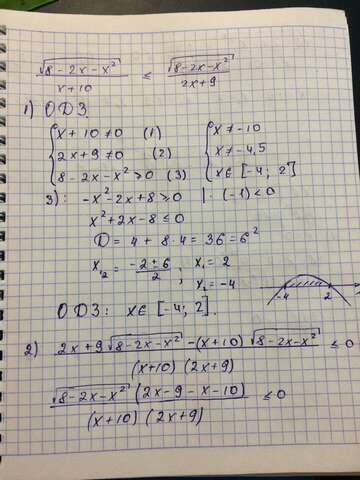 √(8-2x-x²) / (x+10) ≤ √(8-2x-x²) / (2x+9)
1) ОДЗ.
{ x+10 ≠ 0 (1) { x ≠ -10
2x+9 ≠ 0 (2) x ≠ -4,5
8-2x-x² ≥ 0 (3) x ∈ [-4; 2]
3): -x²-2x+8 ≥ 0 | · (-1) < 0
x²+2x-8 ≤ 0
D = 4 + 8·4 = 36 = 6²
x₁,₂ = (-2±6)/2 ; x₁ = 2
x₂ = -4
-4 2
ОДЗ: x ∈ [-4; 2].
2) (2x+9√(8-2x-x²) - (x+10)√(8-2x-x²)) / ((x+10)(2x+9)) ≤ 0
√(8-2x-x²) (2x-9-x-10) / ((x+10)(2x+9)) ≤ 0